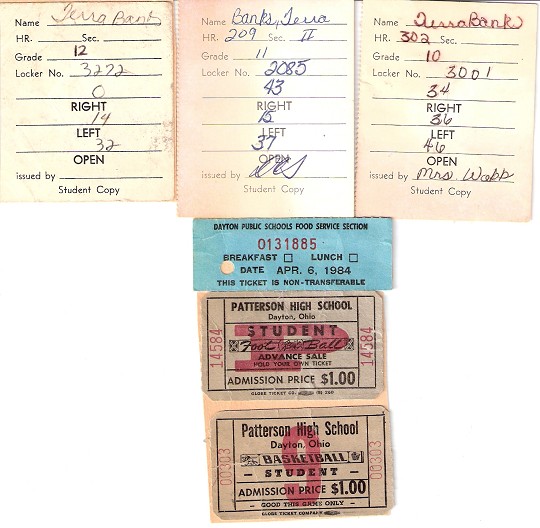 Name Terra Banks
HR. Sec.
Grade 12
Locker No. 3272
0
RIGHT
14
LEFT
32
OPEN
issued by
Student Copy
Name Banks, Terra
HR. 209 Sec. II
Grade 11
Locker No. 2085
43
RIGHT
13
LEFT
37
OPEN
issued by
Student Copy
Name Terra Banks
HR. 302 Sec.
Grade 10
Locker No. 3001
34
RIGHT
36
LEFT
46
OPEN
issued by Mrs. Wapp
Student Copy
DAYTON PUBLIC SCHOOLS FOOD SERVICE SECTION
0131885
BREAKFAST LUNCH
DATE APR. 6, 1984
THIS TICKET IS NON-TRANSFERABLE
PATTERSON HIGH SCHOOL
Dayton, Ohio
STUDENT
Foot Ball
ADVANCE SALE
HOLD YOUR OWN TICKET
ADMISSION PRICE $1.00
GLOBE TICKET CO.
14584
14584
Patterson High School
Dayton, Ohio
BASKETBALL
- STUDENT -
ADMISSION PRICE $1.00
- GOOD THIS GAME ONLY -
GLOBE TICKET COMPANY
00303
00303
9